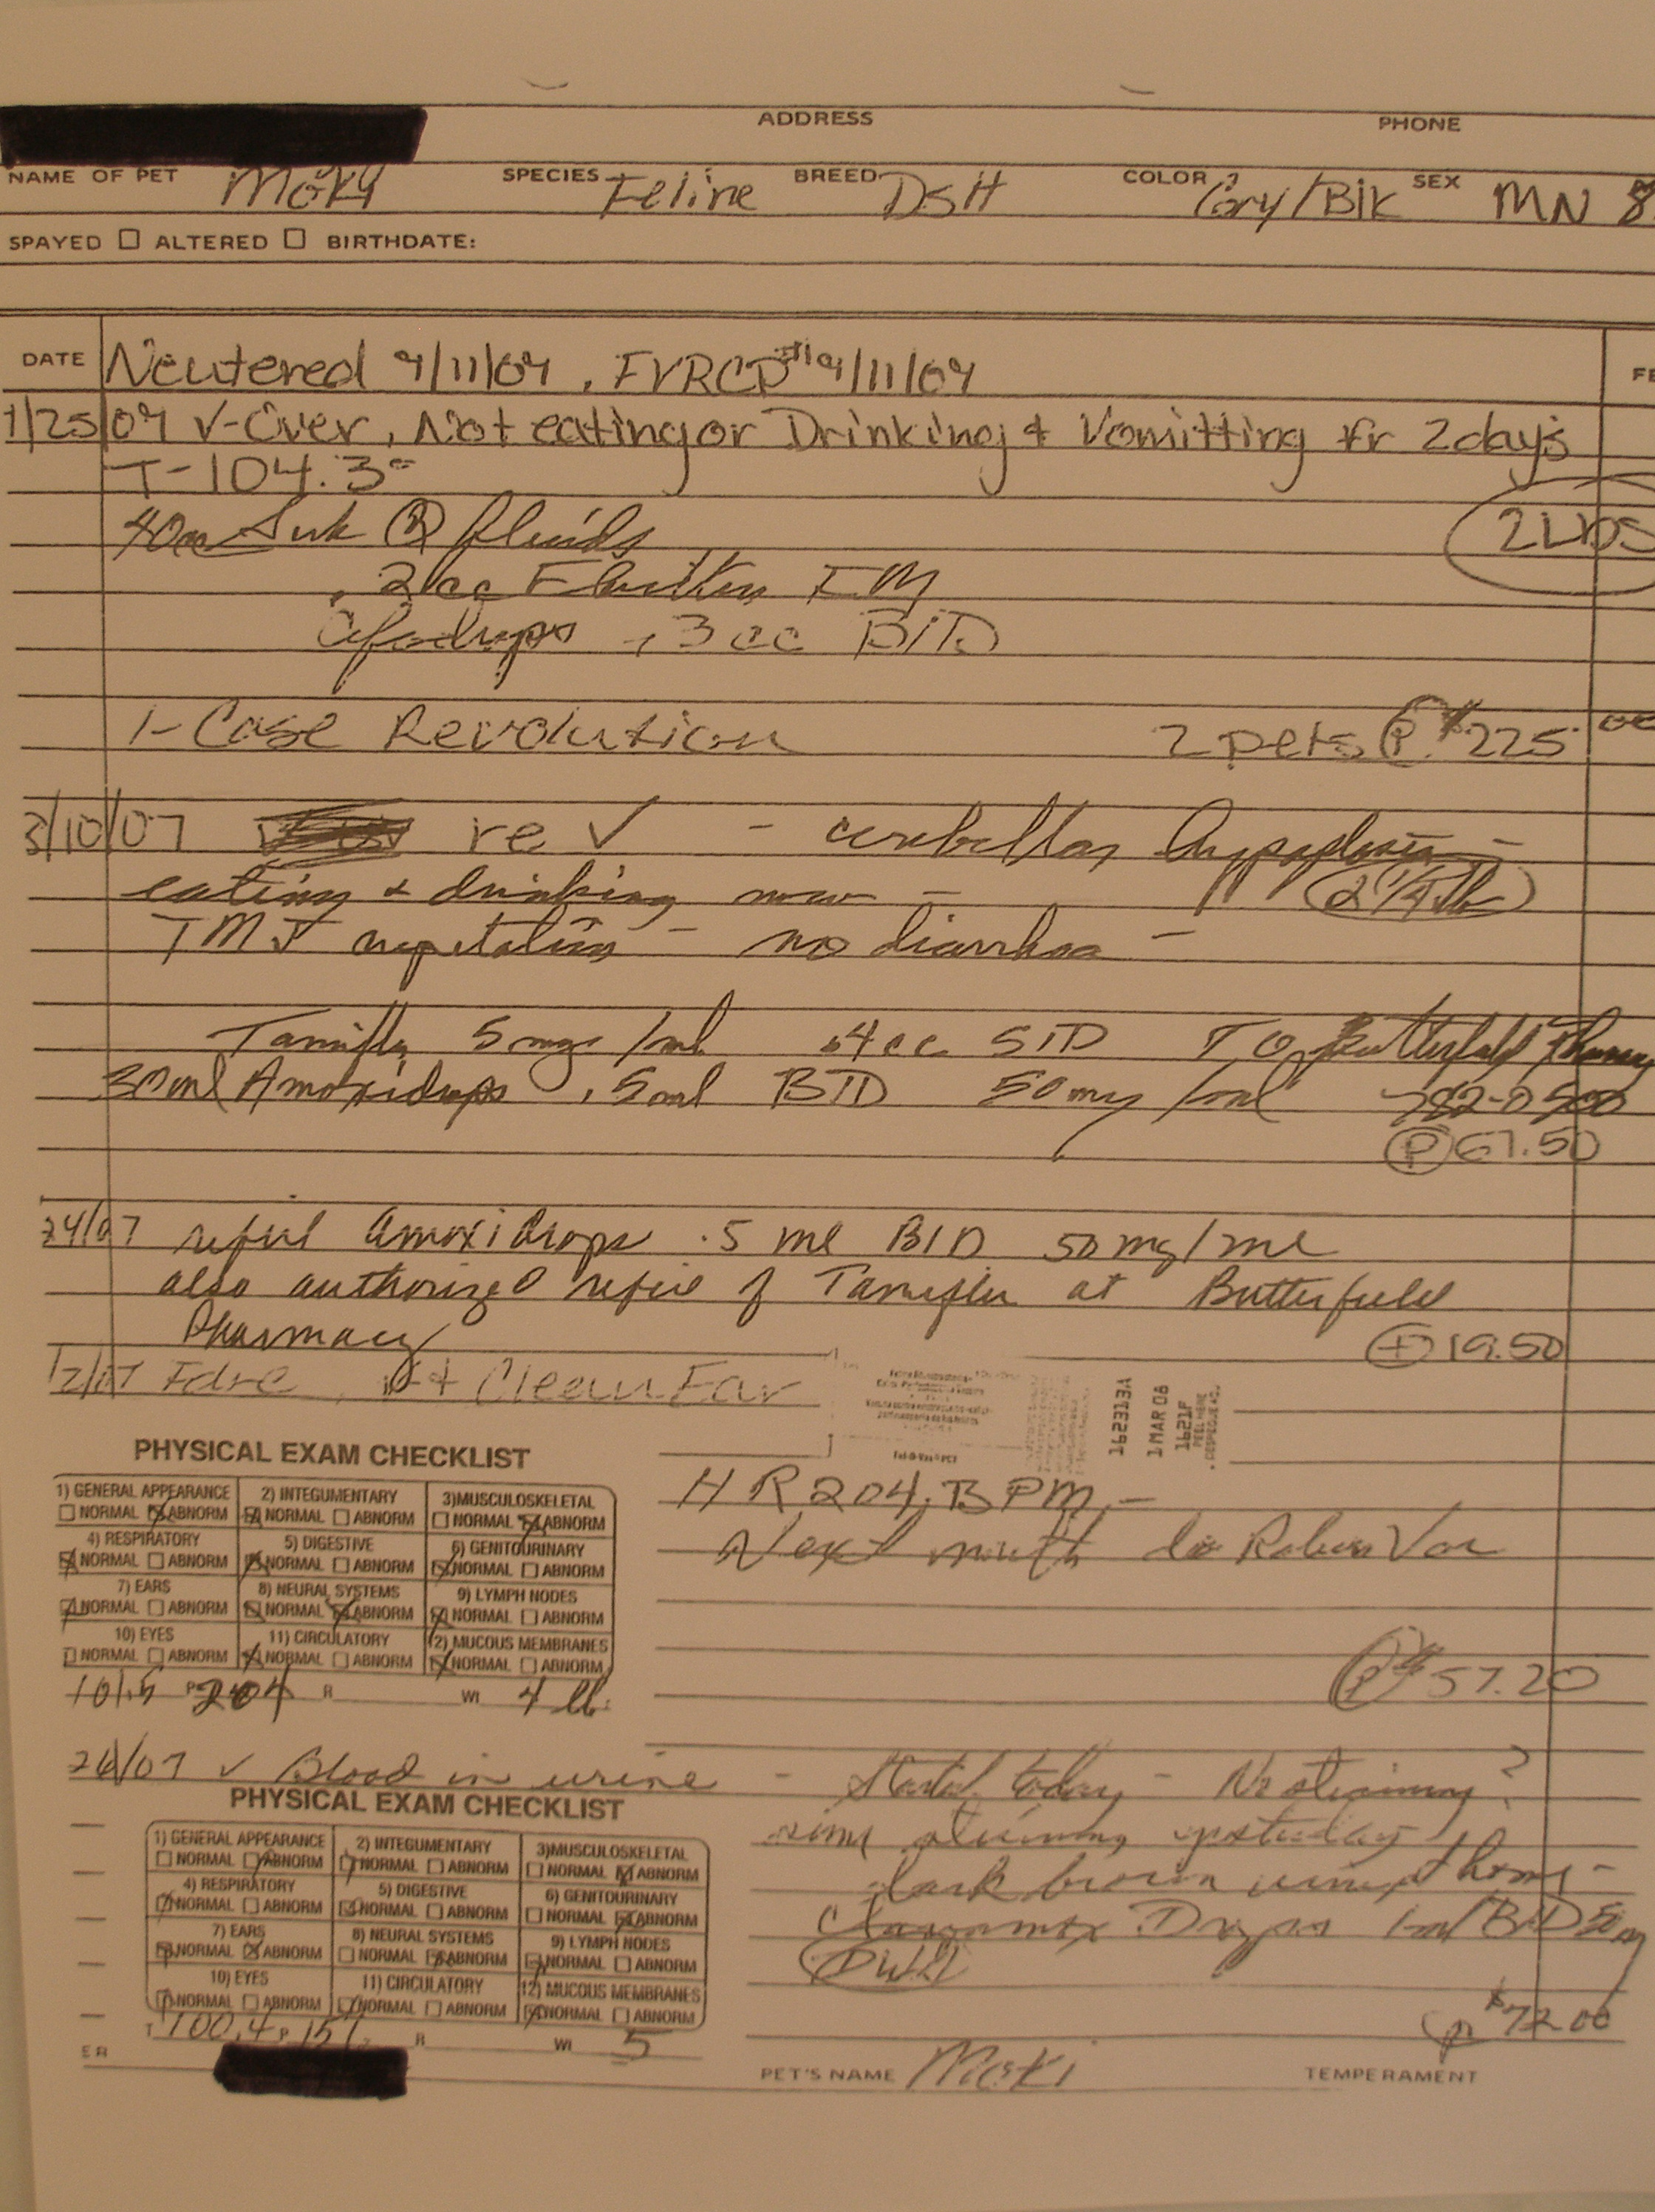 ADDRESS PHONE
NAME OF PET Moki SPECIES Feline BREED DSH COLOR Gry/Blk SEX MN 8
SPAYED ☐ ALTERED ☐ BIRTHDATE:
DATE Neutered 9/11/07, FVRCP #1 9/11/07
/25/07 V-Over, Not eating or Drinking + Vomitting fr 2days
T-104.3°
40cc Sub Q fluids
2 LBS
.2cc IM
.3cc BID
1-Case Revolution 2 pets P $225.
/10/07 re ✓ - cerebellar hypoplasia -
eating & drinking now - 2 1/4 lb
TMJ - no diarrhea -
Tamiflu 5 mgs/ml .4cc SID TO Butterfield Pharmacy
30ml Amoxidrops .5ml BID 50mg/ml 782-0500
P 67.50
24/07 refill Amoxidrops .5 ml BID 50mg/ml
also authorized refill of Tamiflu at Butterfield
Pharmacy
19.50
12/07 Clean Ear
162313A
1 MAR 08
1621F
PEEL HERE
PHYSICAL EXAM CHECKLIST
HR 204 BPM -
1) GENERAL APPEARANCE 2) INTEGUMENTARY 3)MUSCULOSKELETAL
☐ NORMAL ☒ ABNORM ☒ NORMAL ☐ ABNORM ☐ NORMAL ☒ ABNORM
Next month do
4) RESPIRATORY 5) DIGESTIVE 6) GENITOURINARY
☒ NORMAL ☐ ABNORM ☒ NORMAL ☐ ABNORM ☒ NORMAL ☐ ABNORM
7) EARS 8) NEURAL SYSTEMS 9) LYMPH NODES
☒ NORMAL ☐ ABNORM ☒ NORMAL ☒ ABNORM ☒ NORMAL ☐ ABNORM
10) EYES 11) CIRCULATORY 12) MUCOUS MEMBRANES
☐ NORMAL ☐ ABNORM ☒ NORMAL ☐ ABNORM ☒ NORMAL ☐ ABNORM
101.5 P 204 R WI 4 lb.
P $57.20
26/07 ✓ Blood in urine - Started today - No straining?
PHYSICAL EXAM CHECKLIST
straining yesterday
1) GENERAL APPEARANCE 2) INTEGUMENTARY 3)MUSCULOSKELETAL
☐ NORMAL ☒ ABNORM ☒ NORMAL ☐ ABNORM ☐ NORMAL ☒ ABNORM
dark brown urine at home -
4) RESPIRATORY 5) DIGESTIVE 6) GENITOURINARY
☒ NORMAL ☐ ABNORM ☒ NORMAL ☐ ABNORM ☐ NORMAL ☒ ABNORM
Clavamox Drops 1ml BID
7) EARS 8) NEURAL SYSTEMS 9) LYMPH NODES
☒ NORMAL ☒ ABNORM ☐ NORMAL ☒ ABNORM ☒ NORMAL ☐ ABNORM
10) EYES 11) CIRCULATORY 12) MUCOUS MEMBRANES
☒ NORMAL ☐ ABNORM ☒ NORMAL ☐ ABNORM ☒ NORMAL ☐ ABNORM
T 100.4 P R WI 5
$72.00
ER PET'S NAME Moki TEMPERAMENT